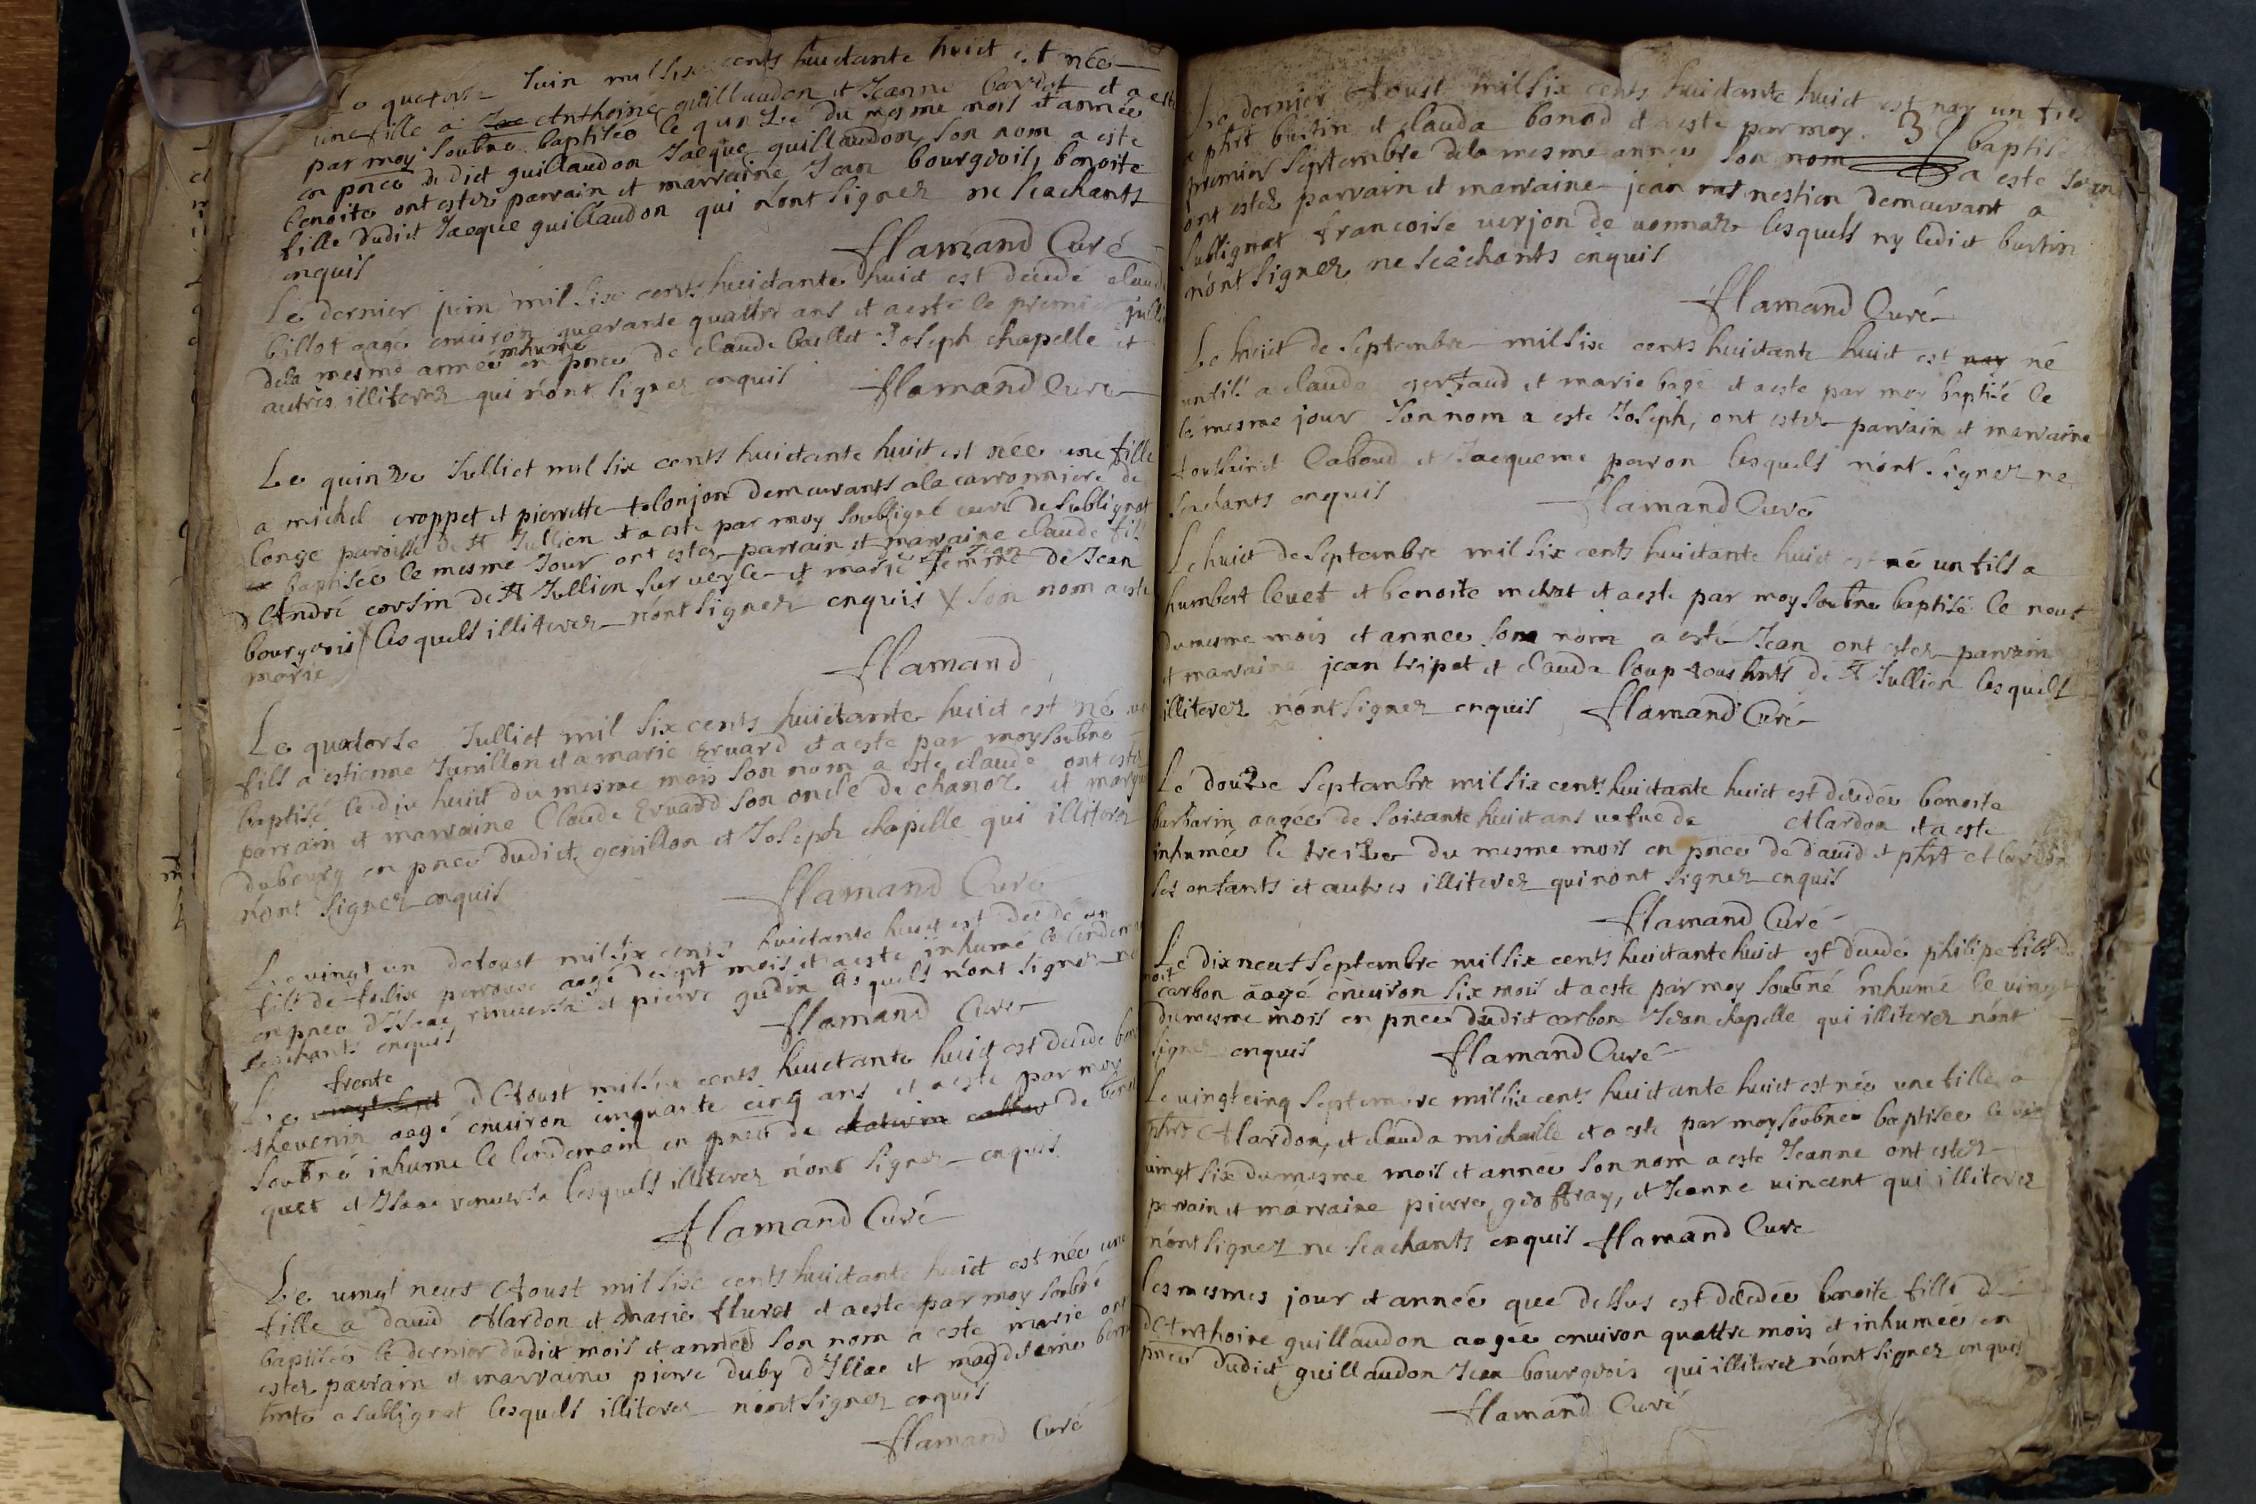 Le quatorse Juin mil six cents huictante huict est née
une fille a Anthoine guillaudon et Jeanne bardot et a esté
par moy soubné baptisée le quinzé du mesme mois et année
en pnce du dict guillaudon Jacque guillaudon son nom a esté
benoite ont estez parrain et marraine Jean bourgeois, benoite
fille dudict Jacque guillaudon qui n'ont signez ne scachants
enquis
flamand Curé
Le dernier juin mil six cents huictante huict est décédé claude
billot aagé environ quarante quattre ans et a esté le premier jullie
dela mesme année inhumé en pnce de claude baillet Joseph chapelle et
autres illiterez qui n'ont signez enquis flamand Curé
Le quinze Julliet mil six cents huictante huict est née une fille
a michel croppet et pierrette tolonjon demeurants a la carronniere de
longe paroisse de St Jullien et a esté par moy soubsigné curé de sublignat
baptisée le mesme Jour ont estez parrain et marraine claude fils
d'André corsin de St Jullien sur veyle et marie femme de Jean
bourgeois lesquels illiterez n'ont signez enquis X son nom a esté
marie
flamand
Le quatorse Julliet mil six cents huictante huict est né un
fils a estienne Junillon et a marie Eruard et a esté par moy soubné
baptisé le dix huict du mesme mois son nom a esté claude ont estez
parrain et marraine Claude Eruard son oncle de chanoz et margu
dubourg en pnce dudict genillon et Joseph chapelle qui illiterez
n'ont signez enquis
flamand Curé
Le vingt un d'aoust mil six cents huictante huict est décédé un
fils de felise perrouse aagé de sept mois et a esté inhumé le lendemain
en pnce d'Isaac renuersa et pierre gudin lesquels n'ont signez ne
scachants enquis
flamand Curé
trente
Le d'Aoust mil six cents huictante huict est décédé ben
thevenin aagé environ cinquante cinq ans et a esté par moy
soubné inhumé le lendemain en pnce de de benoi
quet et Isaac renuersa lesquels illiterez n'ont signez enquis
flamand Curé
Le vingt neuf Aoust mil six cents huictante huict est née une
fille a david Mardon et marie fluret et a esté par moy soubné
baptisée le dernier dudict mois et année son nom a esté marie ont
estez parrain et marraine pierre duby d'Illiac et magdeleine bern
hnte a sublignat lesquels illiterez n'ont signez enquis
flamand Curé
Le dernier Aoust mil six cents huictante huict est nay un fils
a phrt burtin et clauda bonod et a esté par moy 3 baptisé
premier septembre dela mesme année son nom a esté Jean
ont estez parrain et marraine jean rat nestion demeurant a
sublignat francoise verjon de vonnaz lesquels ny ledict burtin
n'ont signez ne scachants enquis
flamand Curé
Le huict de septembre mil six cents huictante huict est nay né
un fils a claude gertaud et marie bagé et a esté par moy baptisé le
le mesme jour son nom a esté Joseph, ont estez parrain et marraine
toussainct labaud et Jacqueme paron lesquels n'ont signez ne
scachants enquis flamand Curé
Le huict de septembre mil six cents huictante huict est né un fils a
humbert levet et benoite mivat et a esté par moy soubné baptisé le neuf
du mesme mois et année son nom a esté Jean ont estez parrain
et marraine jean tripet et clauda loup tous hnts de St Jullien lesquels
illiterez n'ont signez enquis flamand Curé
Le douze septembre mil six cents huictante huict est décédée benoite
barbarin aagée de soixante huict ans vefue de Mardon et a esté
inhumée le treize du mesme mois en pnce de david et phrt Mardon
ses enfants et autres illiterez qui n'ont signez enquis
flamand Curé
Le dix neuf septembre mil six cents huictante huict est décédé philipe fils de
carbon aagé environ six mois et a esté par moy soubné inhumé le vingt
du mesme mois en pnce dudict carbon Jean chapelle qui illiterez n'ont
signez enquis flamand Curé
Le vingt cinq septembre mil six cents huictante huict est née une fille a
phrt Mardon, et clauda michaille et a esté par moy soubné baptisée le
vingt six du mesme mois et année son nom a esté Jeanne ont estez
parrain et marraine pierre, geoffray, et Jeanne vincent qui illiterez
n'ont signez ne scachants enquis flamand Curé
Les mesmes jour et année que dessus est décédée benoite fille d
d'Anthoine guillaudon aagée environ quattre mois et inhumée en
pnce dudict guillaudon Jean bourgeois qui illiterez n'ont signez enquis
flamand Curé